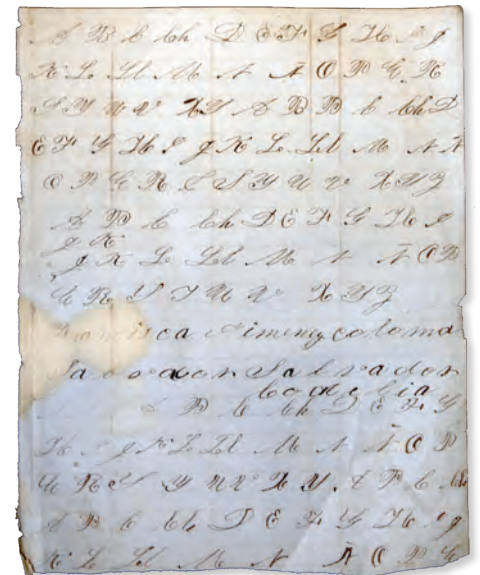 A B C Ch D E F G H I J
K L Ll M N Ñ O P Q R
S T U V X Y A B B C Ch D
E F G H I J K L Ll M N Ñ
O P Q R S T U V X Y Z
A B C Ch D E F G H I
J K
J K L Ll M N Ñ O P
Q R S T U V X Y Z
Francisca Jimenez coloma
Salvador Salvador
A B C Ch D E F G
H I J K L Ll M N Ñ O P
Q R S T U V X Y A B C Ch
A B C Ch D E F G H I J
K L Ll M N Ñ O P Q